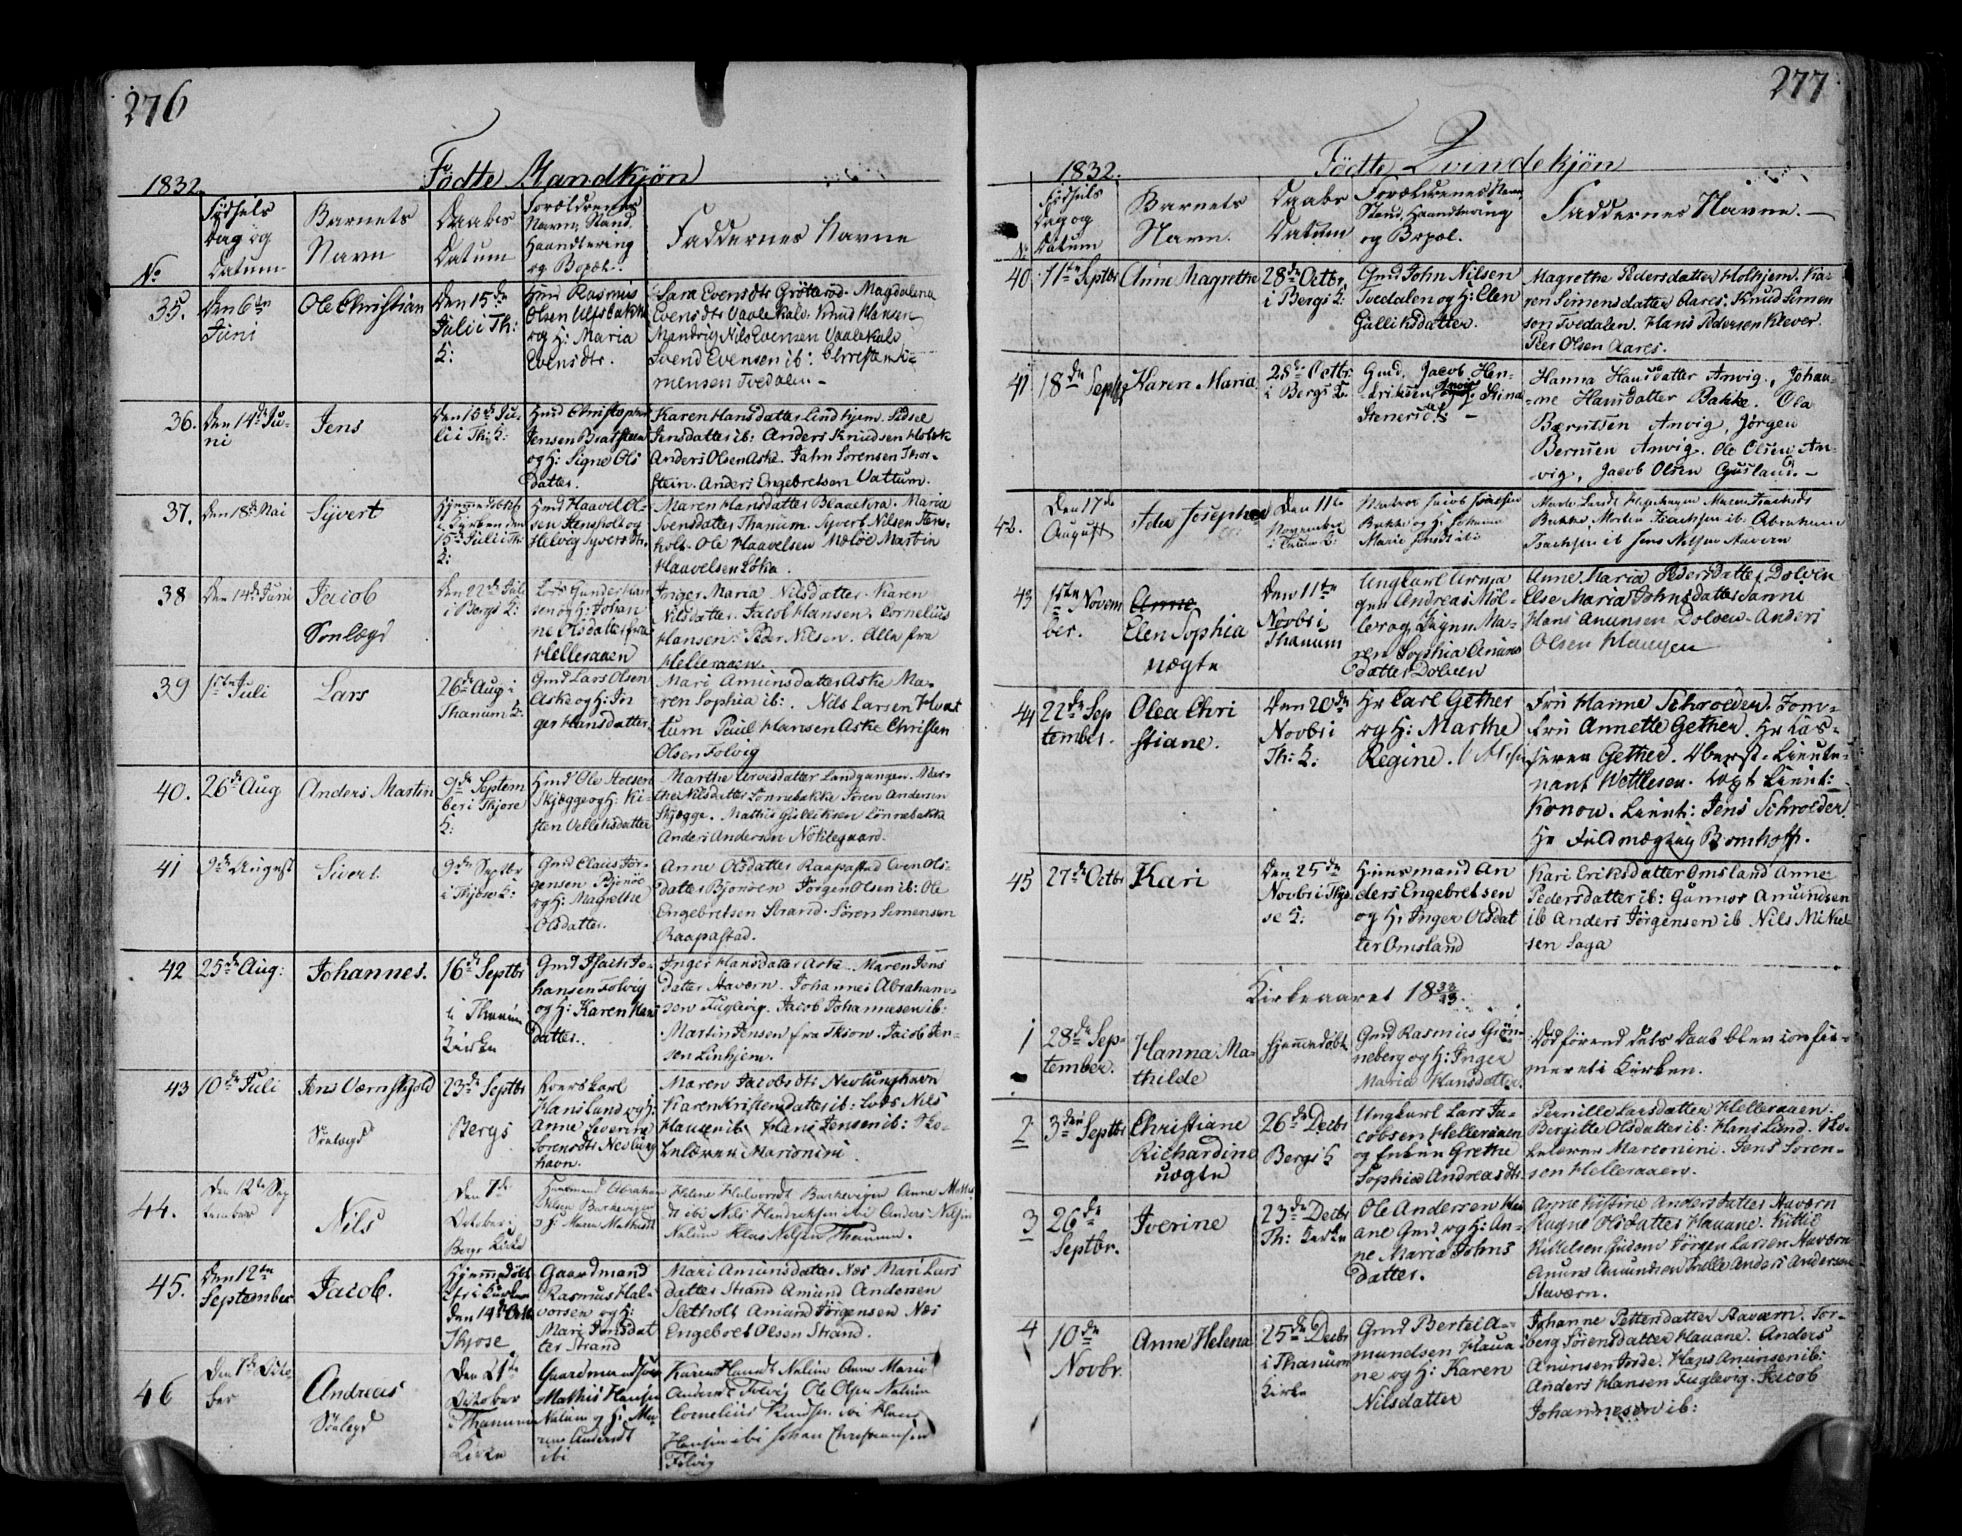 276
Födte Mandkjön
1832.
No
Födsels
Dag og
Datum
Barnets
Navn
Daabs
Datum
Forældrenes
Navn, Stand,
Haandtering
og Bopæl.
Faddernes Navne
35.
Den 6te
Juni
Ole Christian
Den 15de
Juli i Th:
K:
Hmd Rasmus
Olsen
og H: Maria
Evensdtr.
Sara Evensdtr Grötterød. Magdalena
Evensdtr Vaalekale. Knud Hansen
Nils Evensen Vaalekale
Svend Evensen ib: Christen Si-
mensen Tvedalen -
36.
Den 14de Ju-
ni
Jens
Den 15de Ju-
li i Th: K:
Hmd Christopher
Jensen
og H: Signe Ols
datter.
Karen Hansdatter Lindhjem. Sidsel
Jensdatter ib: Anders Knudsen Holek
Anders Olsen Aske. Jahn Sorensen Thor-
stein. Anders Engebretsen Vattum.
37.
Den 18de Mai
Syvert
Hjemmedøbt
i Kirken den
15de Juli i Th:
K:
Hmd Haavel Ol-
sen Stensholt og
Helvig Syversdtr.
Maren Hansdatter Blaaekra. Maria
Svensdatter Thanum. Syvert Nilsen Stens-
holt. Ole Haavelsen Meløe Martin
Haavelsen Löka.
38
Den 14de Juni
Jacob
Sønlegd
Den 22de Juli
i Bergs K:
Lods Gunder Han
sen og H: Johan
ne Olsdatter fra
Helleraaen
Inger Maria Nilsdatter. Karen
Nilsdatter. Jacob Hansen. Cornelius
Hansen. Peder Nilsen. Alle fra
Helleraaen.
39
1ste Juli
Lars
26de Aug i
Thanum K:
Gmd Lars Olsen
Aske og H: In
ger Hansdatter.
Mari Amunsdatter Aske Ma-
ren Sophia ib: . Nils Larsen Hvat
tum Paul Hansen Aske Christen
Olsen Folvig
40.
26de Aug
Anders Martin
9de Septem
ber i Thjose
K:
Hmd Ole
Skjægge og H: Ki-
sten Vellichsdatter
Marthe Arvesdatter Landgangen. Mar-
the Nilsdatter Lönnebakke Sören Andersen
Skjægge. Mathis Gulliksen Lönnebakke
Anders Andersen Nöklegaard.
41
9de August
Sivert
9de Septbr
i Thjose K:
Gmd Claus Jör-
gensen Bjonöe
og H: Magrethe
Olsdatter.
Anne Olsdatter Raapastad Even Ols-
datter Bjonöen Jörgen Olsen ib: Ole
Engebretsen Strand. Sören Simensen
Raapastad.
42
25de Aug:
Johannes.
16de Septbr
i Thanum
Kirke
Gmd Isach Jo-
hansen Folvig
og H: Karen Han
datter.
Inger Hansdatter Aske. Maren Jens
datter Stavern. Johannes Abraham-
sen Fuglevig. Jacob Johannesen ib:
Martin Jensen fra Skion. Jacob Jen-
sen Linhjem.
43
10de Juli
Jens Værnskjold
Sønlegd
23de Septbr
Bergs
Hans Lund og H:
Anne Severine
Sorensdtr Nevlung
havn.
Maren Jacobsdtr Nevlunghavn
Karen Kristensdatter ib: Lods Nils
Hansen ib: Hans Jensen ib: Sko-
lelærer Marionini.
44.
Den 12te Sep
tember
Nils
Den 7de
October i
Bergs Kirke
Huusmand Abraham
Nilsen Barkevigen
og H: Maren Mathisdtr
Helene Halvorsdt Barkevigen Anne
ibi Nils Hendriksen ibi Anders Nilsen
Nalum Klas Nilsen Thanum.
45.
Den 12te
September
Jacob.
Hjemmedøbt
Chr i Kirken
den 14de Octb
Thjose
Gaardmand
Rasmus Hal-
vorsen og H:
Mari Jonsdat
ter Strand
Mari Amunsdatter Næs Mari Lars
datter Strand Amund Andersen
Sletholt Amund Jörgensen Næs
Engebret Olsen Strand.
46
Den 1ste Octo
ber
Andreas
Sønlegd
Den 21de
October
i Thanum
Kirke
Gaardmandsøn
Mathis Hansen
Nalum og H: Ma-
ren Andersdt
ibi
Karen Hansdt Nalum Anne Marie
Andersdt Folvig Ole Olsen Nalum
Cornelius Knudsen ibi Hans
Hansen ibi Johan Christiansen
Folvig
277
Födte Qvindekjön
1832.
No
Födsels
Dag og
Datum
Barnets
Navn.
Daabs
Datum
Forældrenes Navn,
Stand, Haandtering
og Bopæl.
Faddernes Navne. -
40
11te Septbr
Anne Magrethe
28de Octbr
i Bergs K:
Gmd John Nilsen
Tvedalen og H: Elen
Gulliksdatter.
Magrethe Pedersdatter Holhjem. Ka-
ren Simensdatter Aares. Knud Simon
sen Tvedalen. Hans Pedersen Klever.
Peer Olsen Aares.
41
18de Septbr
Karen Maria
28de Octbr
i Bergs K.
Gmd. Jacob Hen-
driksen Anvig. H: Stina
Stenersdt: -
Hanna Hansdatter Anvig., Johan-
ne Hansdatter Bakke. Ole
Berntsen Anvig, Jørgen
Bernsen Anvig. Ole Olsen An-
vig, Jacob Olsen Gusland. -
42.
Den 17de
August
Ida Josephine
Den 11te
November
Matros Jacob Isachsen
Bakke og H: Johanne
Marie Jensdt ibi
Bakke Morten Isachsen ib. Abraham
Isachsen ib Jens Nilsen Stavern
43
1ste Novem
ber.
Anne
Elen Sophia
uægte
Den 11te
Novbr i
Thanum
Ungkarl Arma
ger Andreas Möl-
ler og Pigen Ma-
ren Sophia Amuns
datter Dolven
Anne Maria Pedersdatter Dolven
Else Maria Johnsdatter Sanne
Hans Amunsen Dolven. Anders
Olsen Haugen
44
22de Sep
tember.
Olea Chri
stiane.
Den 20de
Novbr i
Th: K:
Hr Carl Gether
og H: Marthe
Regine.
Fru Hanne Schroeder. Jom-
fru Annette Gether. Hr Cas-
serer Gether. Oberst-Lieute-
nant Wettlesen. Capt Lieut:
Konow. Lieut: Jens Schroeder.
Hr Fuldmægtig Bomhoff.
45
27de Octbr
Kari
Den 25de
Novbr i Thjo
se K:
Huusmand An
ders Engebretsen
og H: Inger Olsdat
ter Omsland
Kari Eriksdatter Omsland Anne
Pedersdatter ib: Gunnor Amundsen
ib Anders Jörgensen ib Nils Mikel
sen Saga
Kirkeaaret 18 32/33.
1
28de Sep-
tember.
Hanna Ma-
thilde
Hjemmedöbt
Gmd Rasmus Grön-
neberg og H: Inger
Maria Hansdatter.
Död förend dets Daab blev confir-
meret i Kirken.
2
3die Septbr
Christiane
Richardine
uægte
26de Decbr
Bergs K
Ungkarl Lars Ja-
cobsen Helleraaen
og Enken Grethe
Sophia Andreasdtr
Pernille Larsdatter Helleraaen.
Bergitte Olsdatter ib: Hans Lund. Sko-
lelærer Marconini. Jens Soren-
sen Helleraaen.
3
26de
Septbr.
Iverine
23de Decbr
Th: Kirke
Ole Andersen Hau
ane Gmd og H: An-
ne Maria Johns
datter.
Anne Kistine Andersdatter Stavern
Ragne Olsdatter Hauane. Kittil
Kittelsen Gusom Jörgen Larsen Stavern
Amund Amundsen Anders Andersen
Stavern.
4
10de
Novbr.
Anne Helena
25de Decbr
i Thanum
Kirke
Gmd Bertel A-
mundsen Haua
ne og H: Karen
Nilsdatter
Johanne Pettersdatter Stavern. Tor-
berg Sörensdatter Hauane. Anders
Amunsen Jorde. Hans Amunsen ib:
Anders Hansen Fuglevig. Jacob
Johannesen ib: